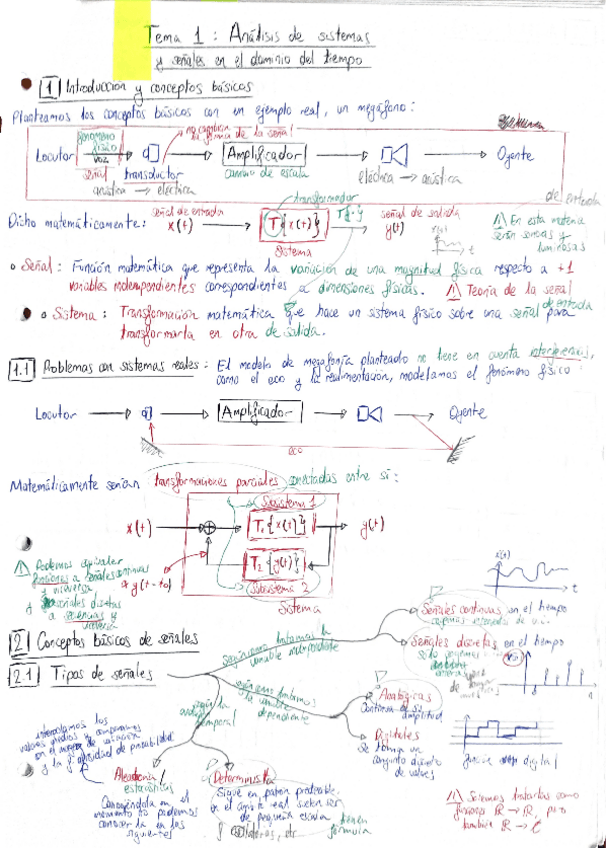 Tema 1 : Análisis de sistemas
y señales en el dominio del tiempo
1 Introducción y conceptos básicos
Planteamos los conceptos básicos con un ejemplo real, un megáfono:
fenómeno físico
no cambian la forma de la señal
Locutor voz Amplificador Oyente
señal transductor cambio de escala eléctrica → acústica
acústica → eléctrica
transformador
de entrada
Dicho matemáticamente: señal de entrada x(t) T{x(t)} T{·} señal de salida y(t)
Sistema
x(t) t
En esta materia
serán sonoras y
luminosas
Señal : Función matemática que representa la variación de una magnitud física respecto a +1
variables independientes correspondientes a dimensiones físicas. Teoría de la señal
Sistema : Transformación matemática que hace un sistema físico sobre una señal de entrada para
transformarla en otra de salida.
1.1 Problemas con sistemas reales : El modelo de megafonía planteado no tiene en cuenta interferencias,
como el eco y la realimentación, modelamos el fenómeno físico:
Locutor Amplificador Oyente
eco
Matemáticamente serían transformaciones parciales conectadas entre sí:
Subsistema 1
x(t) T₁{x(t)} y(t)
T₂{y(t)}
Subsistema 2
Sistema
Podemos equivaler
funciones a señales continuas
y viceversa
y señales discretas
a secuencias y
viceversa
y(t-to)
x(t) t
2 Conceptos básicos de señales
2.1 Tipos de señales
según como tratamos la
variable independiente
Señales continuas en el tiempo
Señales discretas en el tiempo
sólo
x[n]
n
según como tratamos
la variable
dependiente
Analógicas
Continua de su
amplitud
Digitales
Se toma un
conjunto discreto
de valores
digital
según la
temporal
valores medios y
y la densidad de probabilidad
Aleatoria /
estocástica
Conociéndola en el
momento no podemos
conocerla en los
siguientes
Determinista
Sigue un patrón predecible.
en el ámbito real suelen ser
de pequeña escala
tienen
fórmula
Señales tratadas como
funciones ℝ → ℝ, pero
también ℝ → ℂ